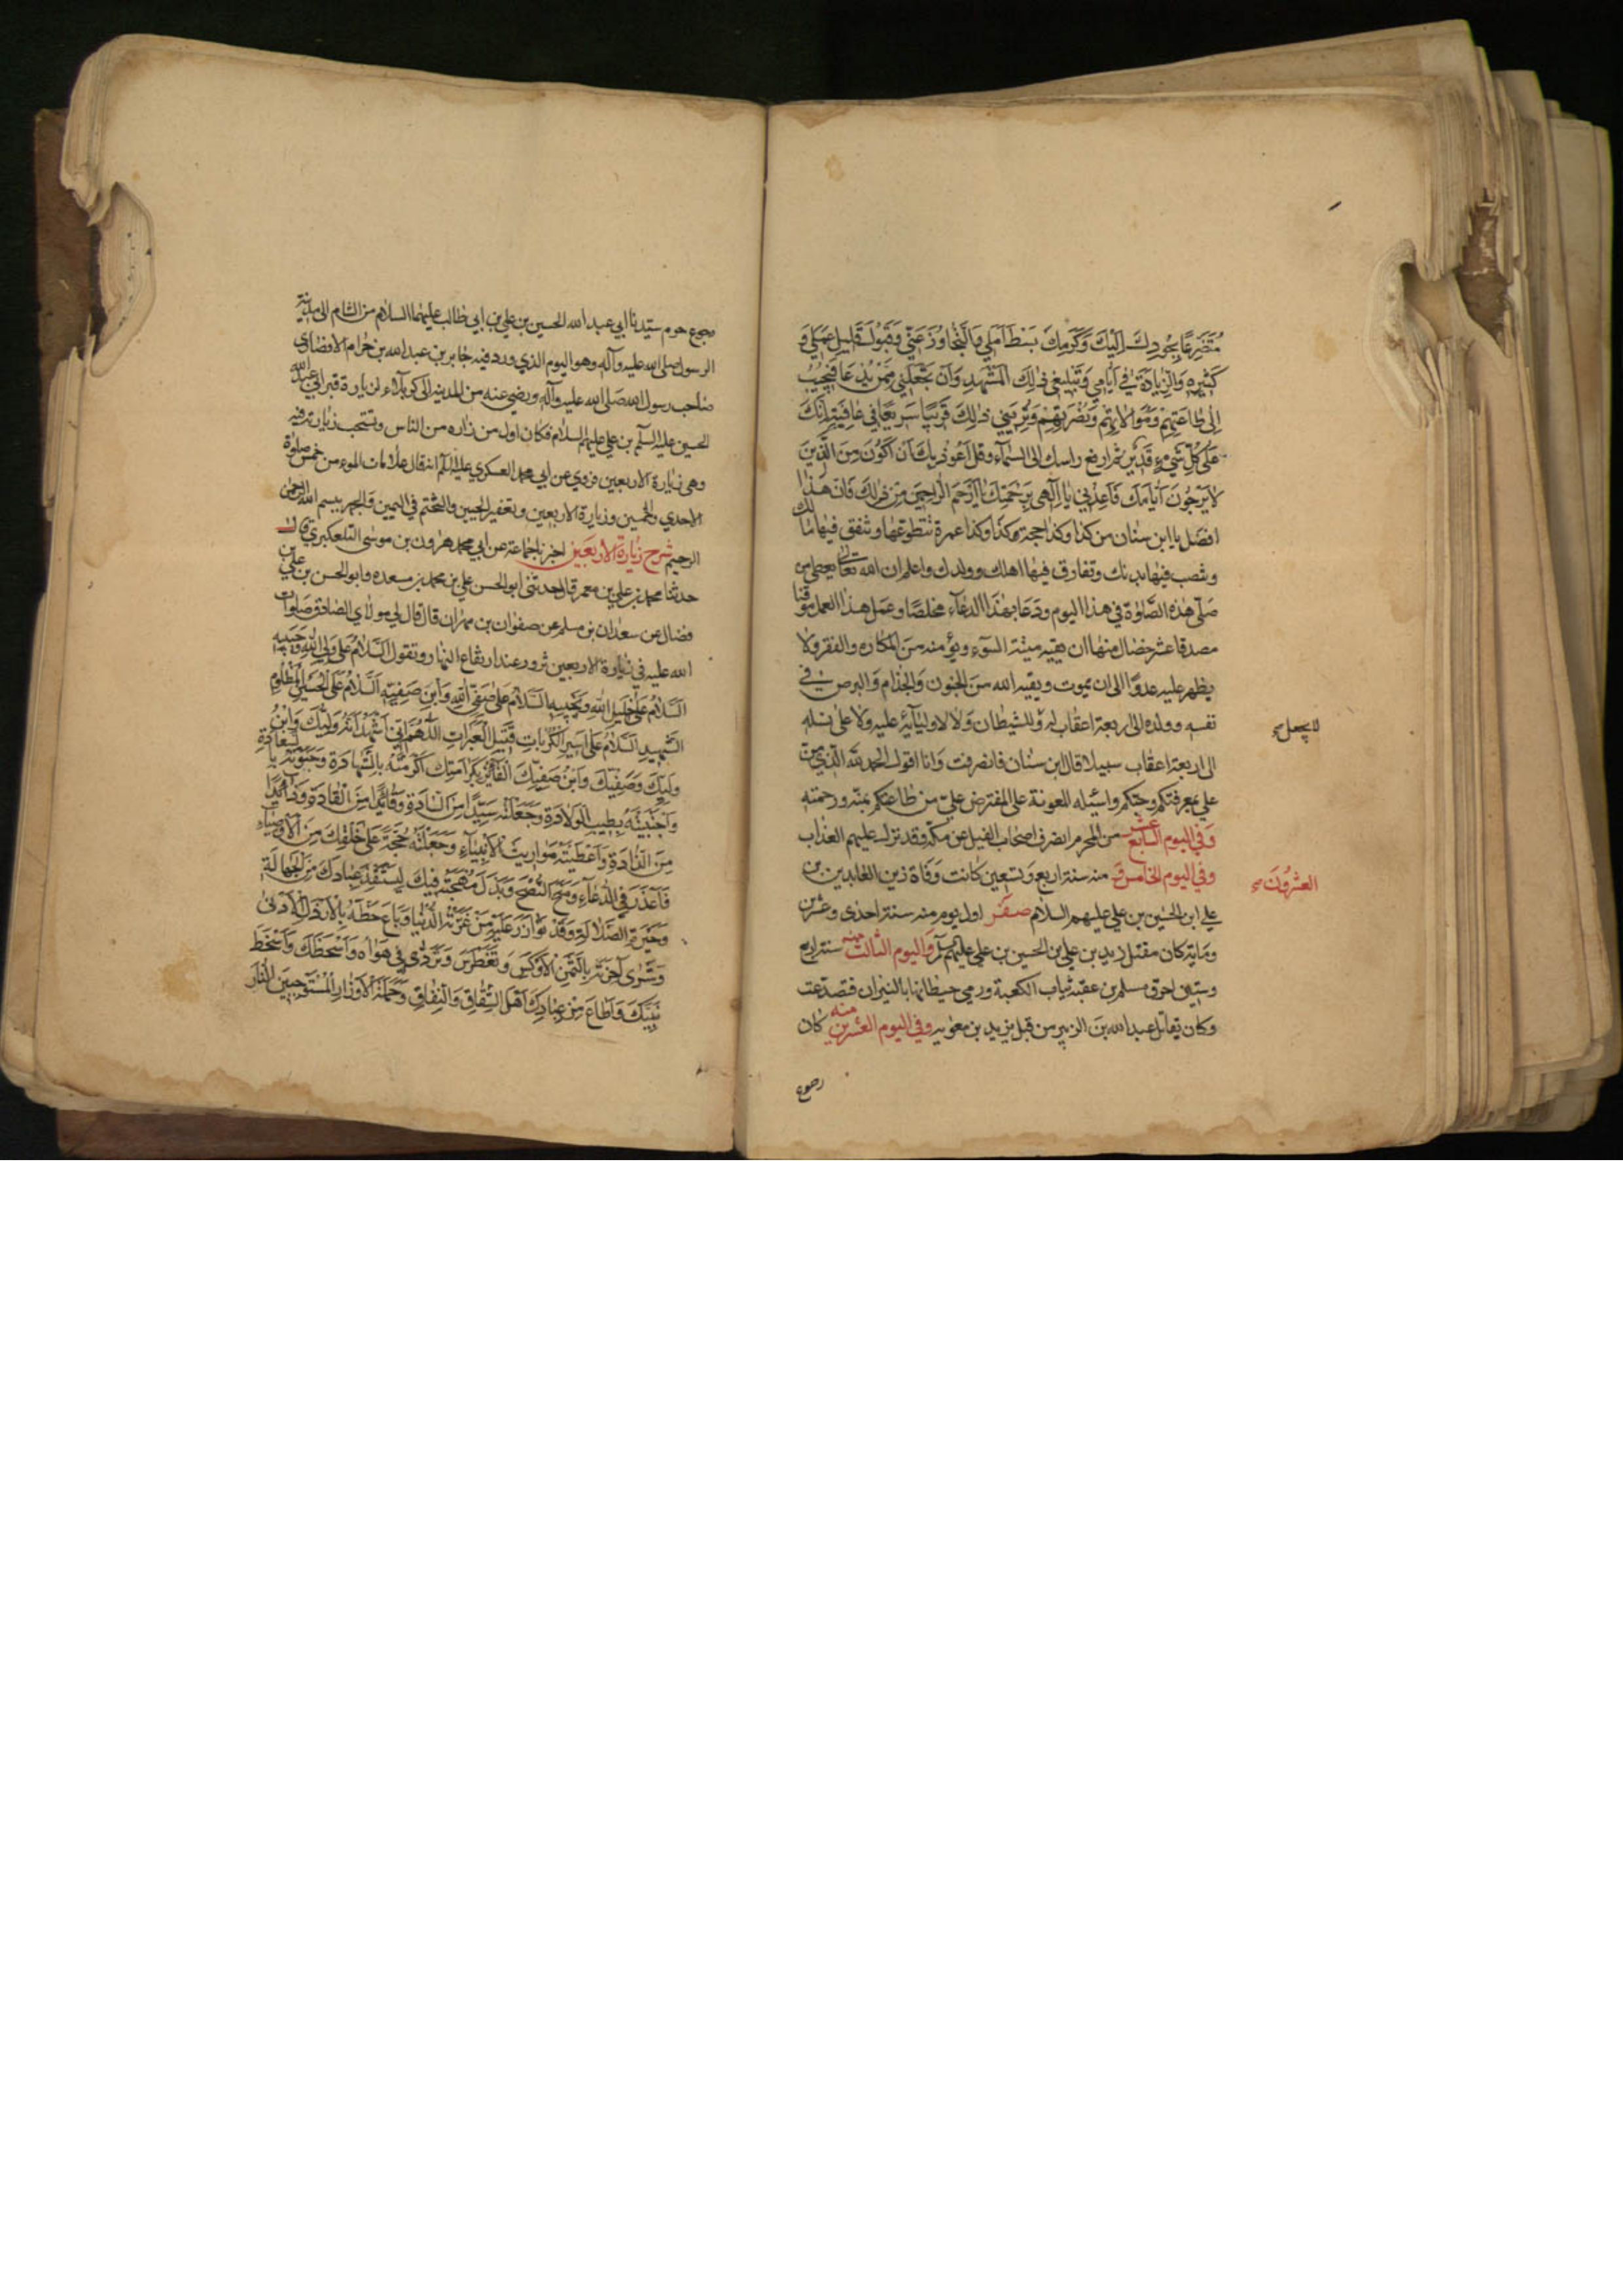 مُتَضَرِّعًا بِجُودِكَ اِلَيْكَ وَكَرَمِكَ بَسْطَ اَمَلِي وَالتَّجَاوُزَ عَنّي وَقَبُولَ قَلِيلِ عَمَلِي وَ
كَثِيرِهِ وَالزِّيَادَةَ فِي اَيَّامِي وَتَبْلِيغِي ذٰلِكَ الْمَشْهَدِ وَاَنْ تَجْعَلَنِي مِمَّنْ يُدْعَا فَيُجِيْبُ
اِلٰى طَاعَتِهِمْ وَمُوَالَاتِهِمْ وَنَصْرَتِهِمْ وَتُرِيَنِي ذٰلِكَ قَرِيْبًا سَرِيْعًا فِي عَافِيَةٍ اِنَّكَ
عَلٰى كُلِّ شَيْءٍ قَدِيْرٌ ثم ارفع راسك الى السماء وقل اَعُوْذُ بِكَ اَنْ اَكُوْنَ مِنَ الَّذِيْنَ
لَا يَرْجُوْنَ اَيَّامَكَ فَاَعِذْنِي يَا اِلٰهِي بِرَحْمَتِكَ يَا اَرْحَمَ الرَّاحِمِيْنَ مِنْ ذٰلِكَ فان هذا
افضل يا ابن سنان من كذا وكذا حجة وكذا وكذا عمرة تتطوعها وتنفق فيها مالك
وتنصب فيها بدنك وتفارق فيها اهلك وولدك واعلم ان الله تعالى يعطي من
صلى هذه الصلوة في هذا اليوم ودعا بهذا الدعاء مخلصا وعمل هذا العمل موقنا
مصدقا عشر خصال منها ان يقيه ميتة السوء ويؤمنه من المكاره والفقر ولا
يظهر عليه عدوا الى ان يموت ويقيه الله من الجنون والجذام والبرص في
نفسه وولده الى اربعة اعقاب له ولا للشيطان ولا لاوليائه عليه ولا على نسله
لا يجعل
الى اربعة اعقاب سبيلا قال ابن سنان فانصرفت وانا اقول الحمد لله الذي من
علي بمعرفتكم وحبكم واسئله المعونة على المفترض علي من طاعتكم بمنه ورحمته
وفي اليوم السابع عشر من المحرم انصرف اصحاب الفيل عن مكة وقد نزل عليهم العذاب
وفي اليوم الخامس و منه سنة اربع وتسعين كانت وفاة زين العابدين
العشرون
علي ابن الحسين بن علي عليهم السلام صفر اول يوم منه سنة احدى وعشرين
وماية كان مقتل زيد بن علي بن الحسين بن علي عليهم واليوم الثالث منه سنة اربع
وستين احرق مسلم بن عقبة ثياب الكعبة ورمى حيطانها بالنيران فتصدعت
وكان يقاتل عبد الله بن الزبير من قبل يزيد بن معوية وفي اليوم العشرين منه كان
رجوع
رجوع حرم سيدنا ابي عبد الله الحسين بن علي بن ابي طالب عليهما السلام من الشام الى مدينة
الرسول صلى الله عليه وآله وهو اليوم الذي ورد فيه جابر بن عبد الله بن حرام الانصاري
صاحب رسول الله صلى الله عليه وآله ورضي عنه من المدينة الى كربلاء لزيارة قبر ابي عبد الله
الحسين عليه السلم بن علي عليهم السلام فكان اول من زاره من الناس وتستحب زيارته فيه
وهي زيارة الاربعين فروي عن ابي محمد العسكري عليه السلم انه قال علامات المومن خمس صلوة
الاحدي والخمسين وزيارة الاربعين وتعفير الجبين والتختم في اليمين والجهر ببسم الله الرحمن
الرحيم شرح زيارة الاربعين اخبرنا جماعة عن ابي محمد هرون بن موسى التلعكبري قال
حدثنا محمد بن علي بن معمر قال حدثني ابو الحسن علي بن محمد بن مسعدة وابو الحسن بن علي بن
فضال عن سعدان بن مسلم عن صفوان بن مهران قال قال لي مولاي الصادق صلوات
الله عليه في زيارة الاربعين تزور عند ارتفاع النهار وتقول السَّلَامُ عَلٰى وَلِيِّ اللهِ وَحَبِيْبِهِ
اَلسَّلَامُ عَلٰى خَلِيْلِ اللهِ وَنَجِيْبِهِ السَّلَامُ عَلٰى صَفِيِّ اللهِ وَابْنِ صَفِيِّهِ اَلسَّلَامُ عَلَى الْحُسَيْنِ الْمَظْلُوْمِ
الشَّهِيْدِ السَّلَامُ عَلٰى اَسِيْرِ الْكُرُبَاتِ قَتِيْلِ الْعَبَرَاتِ اَللّٰهُمَّ اِنّي اَشْهَدُ اَنَّهُ وَلِيُّكَ وَابْنُ
وَلِيِّكَ وَصَفِيُّكَ وَابْنُ صَفِيِّكَ الْفَائِزُ بِكَرَامَتِكَ اَكْرَمْتَهُ بِالشَّهَادَةِ وَحَبَوْتَهُ بِالسَّعَادَةِ
وَاجْتَبَيْتَهُ بِطِيْبِ الْوِلَادَةِ وَجَعَلْتَهُ سَيِّدًا مِنَ السَّادَةِ وَقَائِدًا مِنَ الْقَادَةِ وَذَائِدًا
مِنَ الذَّادَةِ وَاَعْطَيْتَهُ مَوَارِيْثَ الْاَنْبِيَآءِ وَجَعَلْتَهُ حُجَّةً عَلٰى خَلْقِكَ مِنَ الْاَوْصِيَاءِ
فَاَعْذَرَ فِي الدُّعَآءِ وَمَنَحَ النُّصْحَ وَبَذَلَ مُهْجَتَهُ فِيْكَ لِيَسْتَنْقِذَ عِبَادَكَ مِنَ الْجَهَالَةِ
وَحَيْرَةِ الضَّلَالَةِ وَقَدْ تَوَازَرَ عَلَيْهِ مَنْ غَرَّتْهُ الدُّنْيَا وَبَاعَ حَظَّهُ بِالْاَرْذَلِ الْاَدْنٰى
وَشَرٰى آخِرَتَهُ بِالثَّمَنِ الْاَوْكَسِ وَتَغَطْرَسَ وَتَرَدّٰى فِي هَوَاهُ وَاَسْخَطَكَ وَاَسْخَطَ
نَبِيَّكَ وَاَطَاعَ مِنْ عِبَادِكَ اَهْلَ الشِّقَاقِ وَالنِّفَاقِ وَحَمَلَةَ الْاَوْزَارِ الْمُسْتَوْجِبِيْنَ النَّارَ